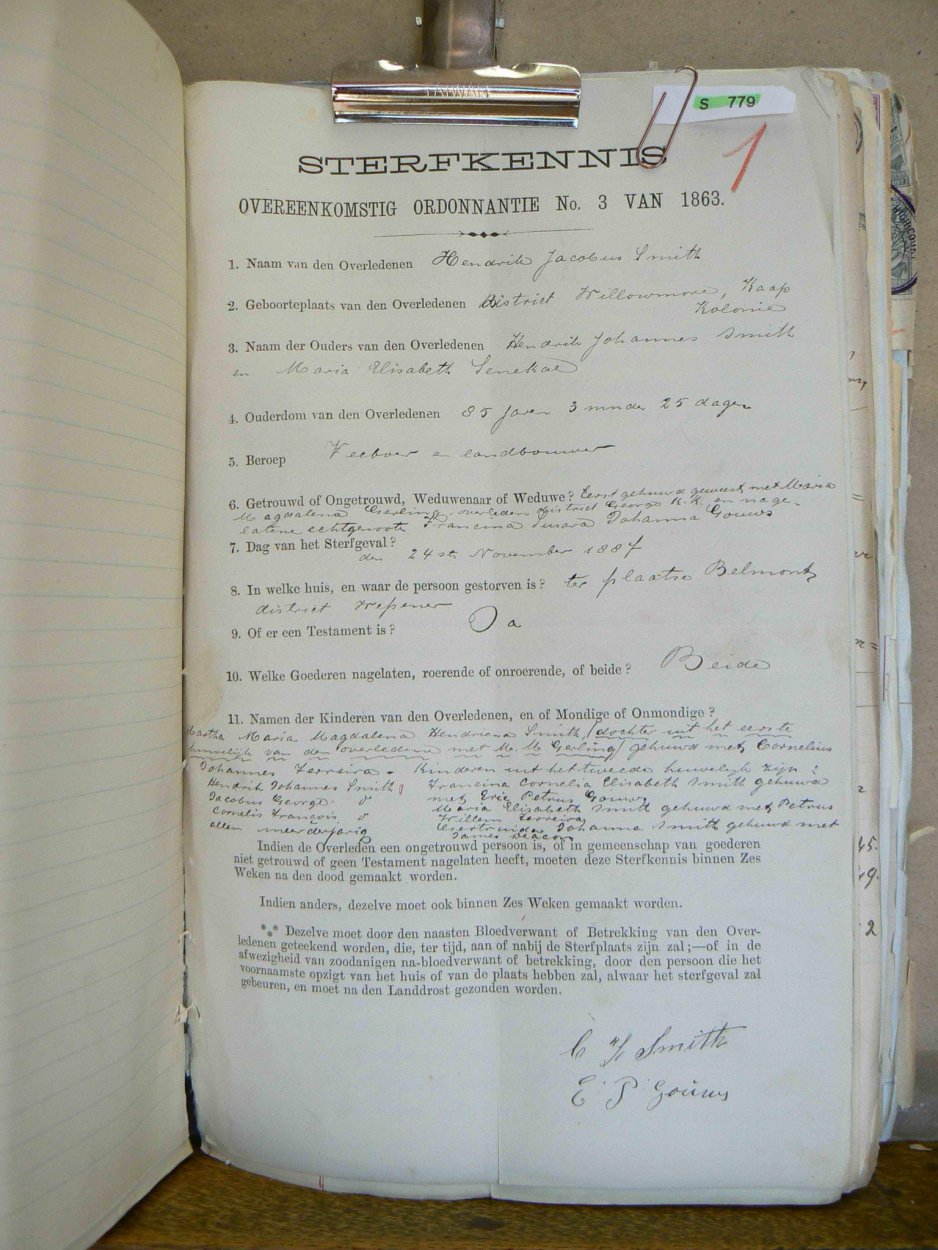 TAIWAN
S 779
1
STERFKENNIS
OVEREENKOMSTIG ORDONNANTIE No. 3 VAN 1863.
1. Naam van den Overledenen Hendrik Jacobus Smith
2. Geboorteplaats van den Overledenen district Willowmore, Kaap
Kolonie
3. Naam der Ouders van den Overledenen Hendrik Johannes Smith
en Maria Elisabeth Senekal
4. Ouderdom van den Overledenen 85 Jaren 3 mnde 25 dagen
5. Beroep Veeboer en landbouwer
6. Getrouwd of Ongetrouwd, Weduwenaar of Weduwe? Eerst gehuwd geweest met Maria
Magdalena Gerling, overleden district George K.K. en nage-
latene echtgenoote Francina Susara Johanna Gouws
7. Dag van het Sterfgeval?
den 24ste November 1887
8. In welke huis, en waar de persoon gestorven is? ter plaatse Belmont,
district Wepener
9. Of er een Testament is? Ja
10. Welke Goederen nagelaten, roerende of onroerende, of beide? Beide
11. Namen der Kinderen van den Overledenen, en of Mondige of Onmondige?
Martha Maria Magdalena Hendriena Smith, (dochter uit het eerste
huwelijk van den overledene met M. M Gerling) gehuwd met Cornelius
Johannes Ferreira. Kinderen uit het tweede huwelijk zijn:
Hendrik Johannes Smith Francina Cornelia Elisabeth Smith gehuwd
Jacobus George do met Eric Petrus Gouws
Cornelis Francois do Maria Elisabeth Smith gehuwd met Petrus
Willem Ferreira
allen meerderjarig Geertruida Johanna Smith gehuwd met
James Deacon
Indien de Overleden een ongetrouwd persoon is, of in gemeenschap van goederen
niet getrouwd of geen Testament nagelaten heeft, moeten deze Sterfkennis binnen Zes
Weken na den dood gemaakt worden.
Indien anders, dezelve moet ook binnen Zes Weken gemaakt worden.
*** Dezelve moet door den naasten Bloedverwant of Betrekking van den Over-
ledenen geteekend worden, die, ter tijd, aan of nabij de Sterfplaats zijn zal;—of in de
afwezigheid van zoodanigen na-bloedverwant of betrekking, door den persoon die het
voornaamste opzigt van het huis of van de plaats hebben zal, alwaar het sterfgeval zal
gebeuren, en moet na den Landdrost gezonden worden.
C F Smith
E P Gouws